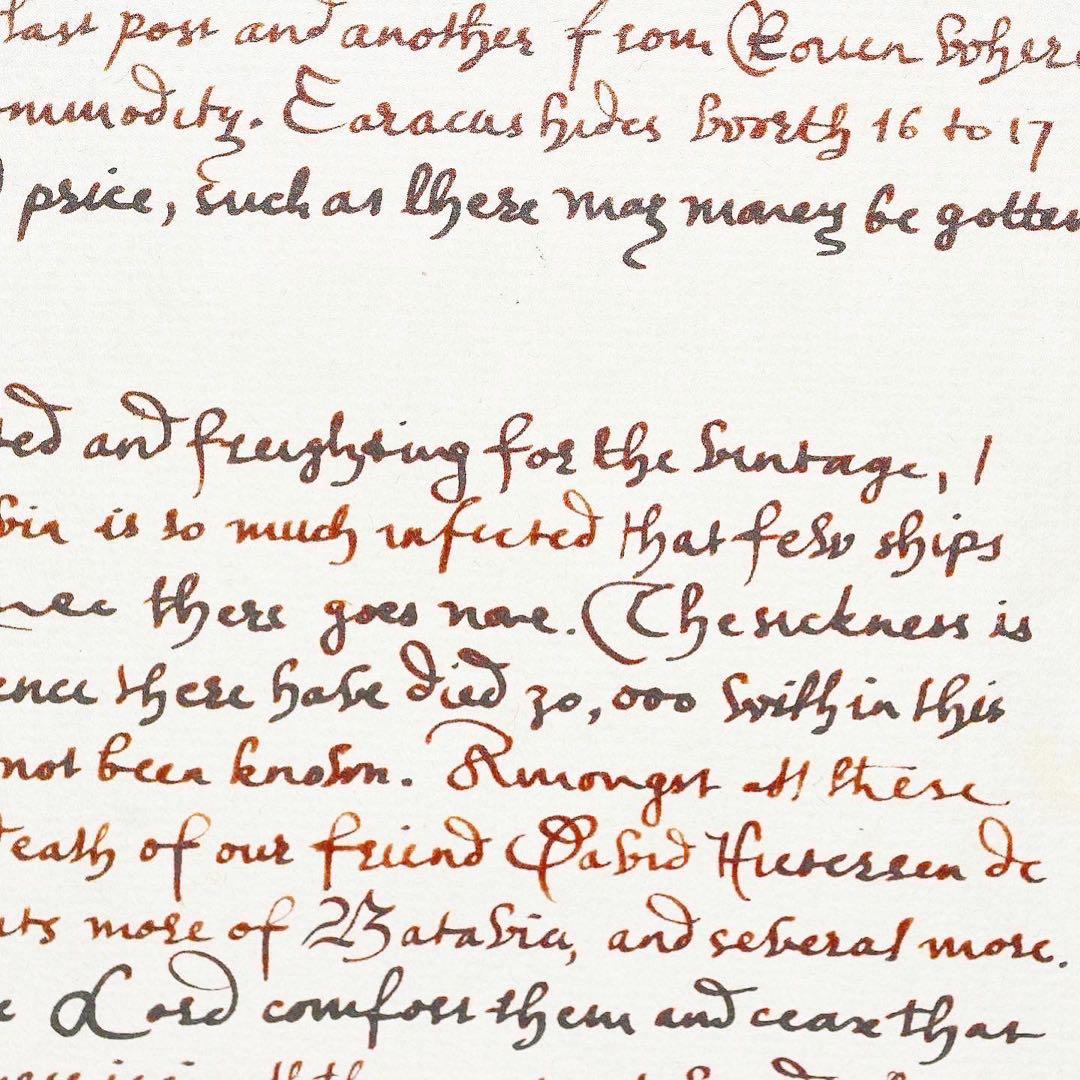 last post and another from Rouen where
mmodity. Caracas hides worth 16 to 17
price, such as there may money be gotten
ted and freighting for the vintage, I
via is so much infected that few ships
there goes none. The sickness is
ence there have died 30,000 within this
not been known. Amongst all these
death of our friend David Pietersen de
nts more of Batavia, and several more.
e Lord comfort them and cease that